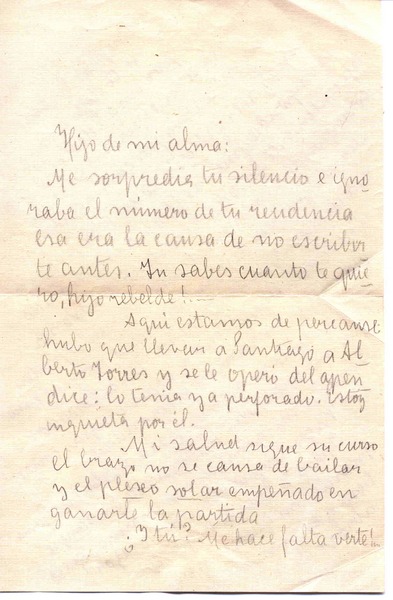 Hijo de mi alma:
Me sorpredia tu silencio e igno
raba el número de tu recidencia
esa era la causa de no escribir
te antes. Tu sabes cuanto te quie
ro, hijo rebelde!.—
Aquí estamos de percanse
hubo que llevar a Santiago a Al
berto Torres y se le operó del apen
dice: lo tenía ya perforado. Estoy
inquieta por él.
Mi salud sigue su curso
el brazo no se cansa de bailar
y el plexo solar empeñado en
ganarte la partida
¿Y tú? Me hace falta verte!..